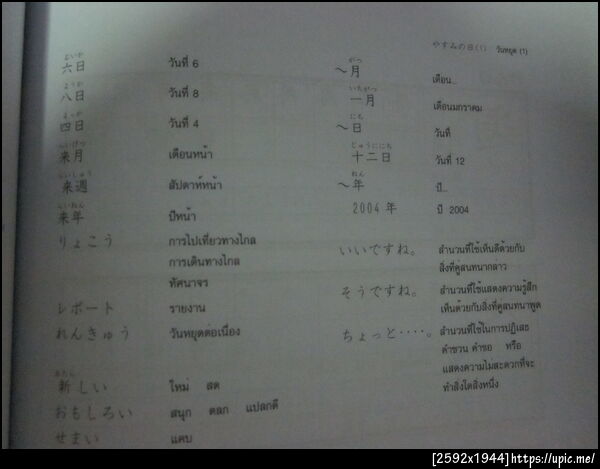 やすみの日(1) วันหยุด (1)
むいか
六日 วันที่ 6
ようか
八日 วันที่ 8
よっか
四日 วันที่ 4
らいげつ
来月 เดือนหน้า
らいしゅう
来週 สัปดาห์หน้า
らいねん
来年 ปีหน้า
りょこう การไปเที่ยวทางไกล
การเดินทางไกล
ทัศนาจร
レポート รายงาน
れんきゅう วันหยุดต่อเนื่อง
あたら
新しい ใหม่ สด
おもしろい สนุก ตลก แปลกดี
せまい แคบ
がつ
～月 เดือน...
いちがつ
一月 เดือนมกราคม
にち
～日 วันที่
じゅうににち
十二日 วันที่ 12
ねん
～年 ปี...
2004年 ปี 2004
いいですね。 สำนวนที่ใช้เห็นดีด้วยกับ
สิ่งที่คู่สนทนากล่าว
そうですね。 สำนวนที่ใช้แสดงความรู้สึก
เห็นด้วยกับสิ่งที่คู่สนทนาพูด
ちょっと‥‥。 สำนวนที่ใช้ในการปฏิเสธ
คำชวน คำขอ หรือ
แสดงความไม่สะดวกที่จะ
ทำสิ่งใดสิ่งหนึ่ง
[2592x1944]https://upic.me/